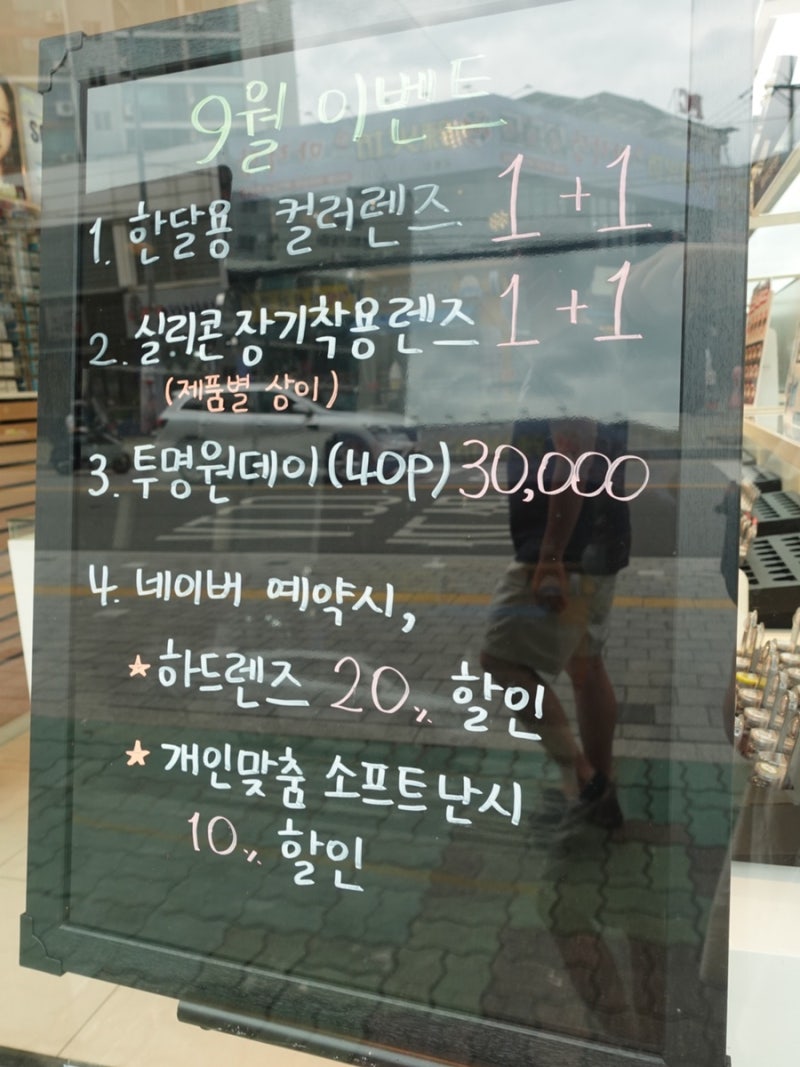 9월 이벤트
1. 한달용 컬러렌즈 1+1
2. 실리콘장기착용렌즈 1+1
(제품별 상이)
3. 투명원데이(40P) 30,000
4. 네이버 예약시,
★하드렌즈 20% 할인
★ 개인맞춤 소프트난시
10% 할인